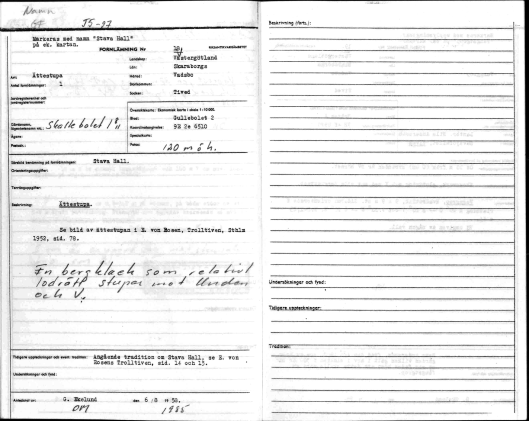 Namn
95-97
Markeras med namn "Stava Hall"
på ek. kartan.
FORNLÄMNING Nr
18
RIKSANTIKVARIEÄMBETET
Landskap: Västergötland
Län: Skaraborgs
Art: Ättestupa
Härad: Vadsbo
Antal fornlämningar: 1
Socken: Tived
Översiktskarta: Ekonomisk karta i skala 1:10.000.
Blad: Gullebolet 2
Koordinatangivelse: 9E 2e 6510
Specialkarta:
Skallebolet 1
Ägare:
Postadr.:
120 m ö h.
Särskild benämning på fornlämningen: Stava Hall.
Orienteringsuppgifter:
Terränguppgifter:
Beskrivning: Ättestupa.
Se bild av ättestupan i E. von Rosen, Trolltiven, Sthlm
1952, sid. 78.
En bergklack som relativt
lodrätt stupar mot Unden
och V.
Tidigare uppteckningar och övern. tradition: Angående tradition om Stava Hall, se E. von
Rosens Trolltiven, sid. 14 och 15.
Undersökningar och fynd:
Antecknat av G. Ekelund den 6/8 1958.
1985
Beskrivning (forts.):
Undersökningar och fynd:
Tidigare uppteckningar:
Tradition: